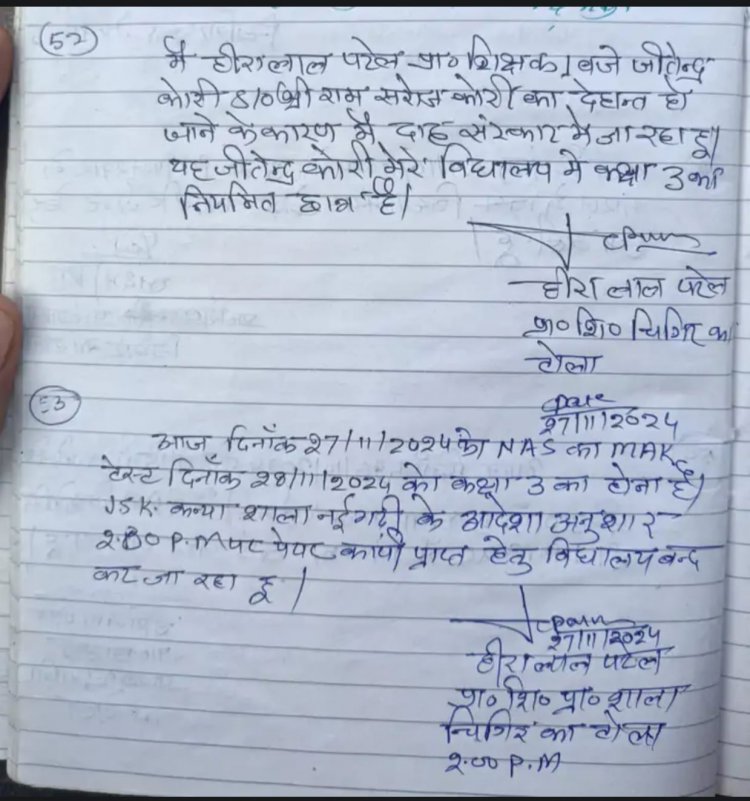 (52)
मै हीरालाल पटेल प्रा० शिक्षक 1 बजे जीतेन्द्र
कोरी S/O श्री राम सरोज कोरी का देहान्त हो
जाने के कारण मै दाह संस्कार मे जा रहा हू।
यह जीतेन्द्र कोरी मेरे विद्यालय मे कक्षा 3 का
नियमित छात्र है।
हीरा लाल पटेल
प्रा० शि० चिगिर का
टोला
53
Date
27/11/2024
आज दिनाँक 27/11/2024 को NAS का MAK
टेस्ट दिनाँक 28/11/2024 को कक्षा 3 का होना है।
JSK. कन्या शाला नईगढ़ी के आदेशा अनुशार
2.00 P.M पर पेपर कापी प्राप्त हेतु विद्यालय बन्द
कर जा रहा हू।
27/11/2024
हीरालाल पटेल
प्रा० शि० प्रा० शाला
चिगिर का टोला
2.00 P.M